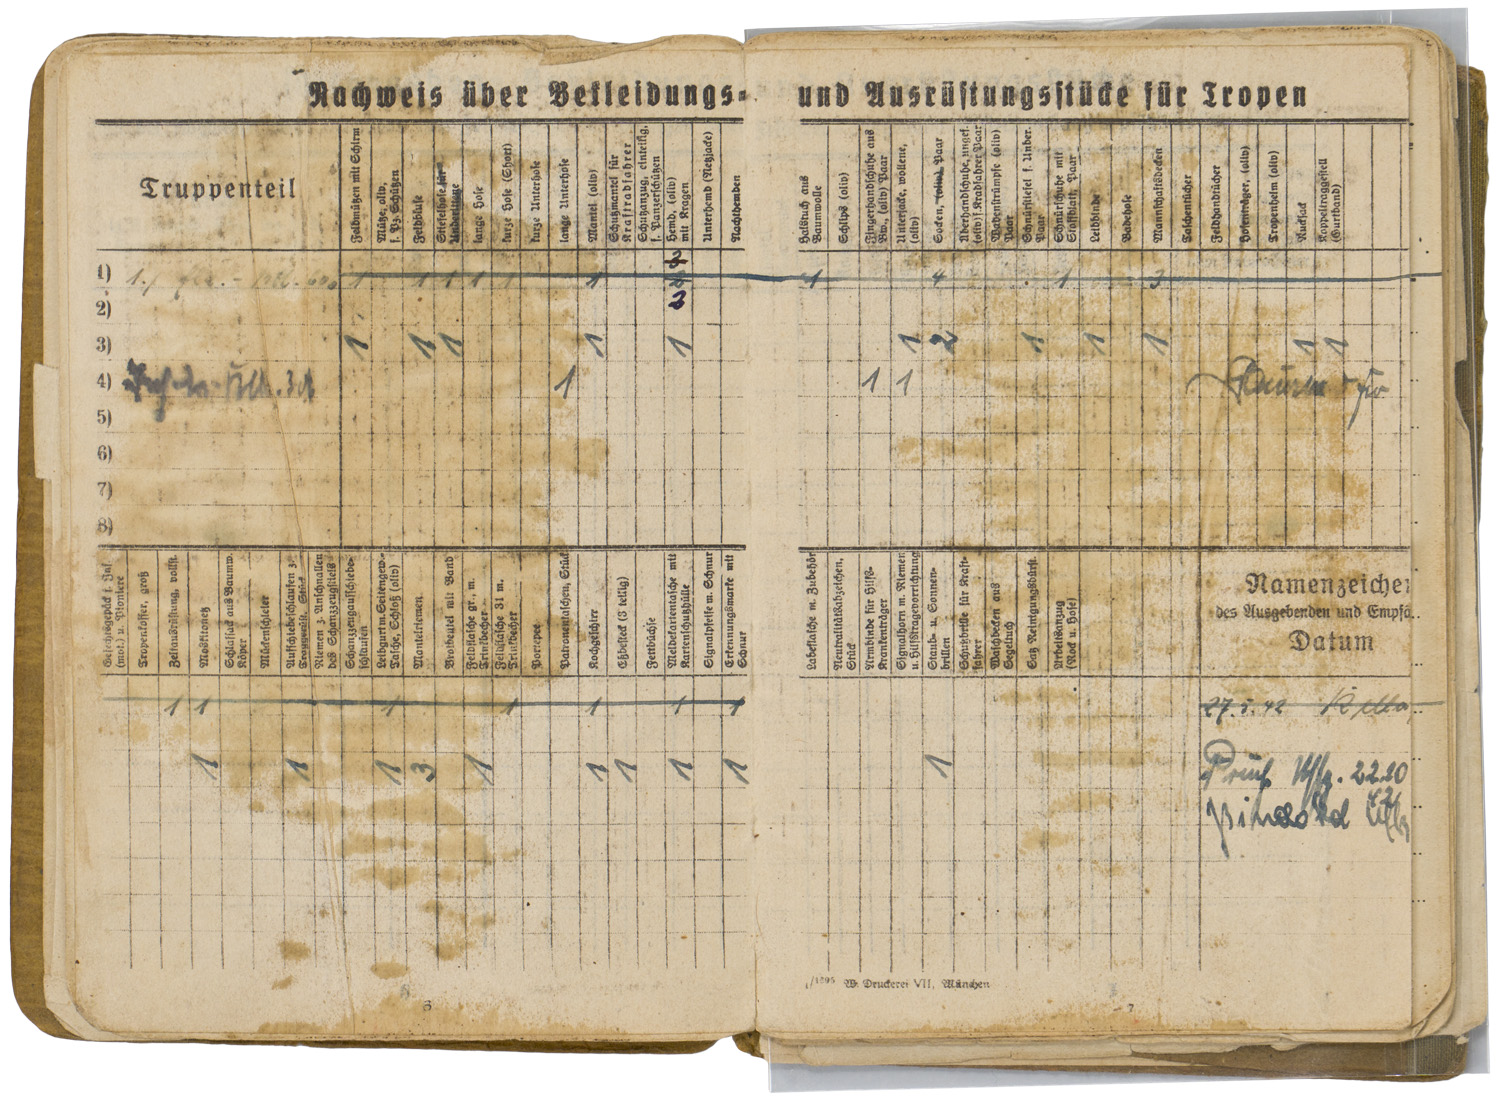 Nachweis über Bekleidungs- und Ausrüstungsstücke für Tropen
Truppenteil
Feldmützen mit Schirm
Mütze, oliv, f. Pz. Schützen
Feldbluse
Stiefelhose für Unberittene
lange Hose
kurze Hose (Short)
kurze Unterhose
lange Unterhose
Mantel (oliv)
Schutzmantel für Kraftradfahrer
Schutzanzug, einteilig, f. Panzerschützen
Hemd, (oliv) mit Kragen
Unterhemd (Netzjacke)
Nachthemden
Halstuch aus Baumwolle
Schlips (oliv)
Fingerhandschuhe aus Bw., (oliv) Paar
Unterjacke, wollene, (oliv)
Socken, (oliv), Paar
Überhandschuhe, ungef. (oliv) f. Kradfahrer Paar
Wadenstrümpfe (oliv) Paar
Schnürstiefel f. Unber. Paar
Schnürschuhe mit Stoffblatt, Paar
Leibbinde
Badehose
Mannschaftsdecken
Taschentücher
Feldhandtücher
Hosenträger, (oliv)
Tropenhelm (oliv)
Rucksack
Koppeltragestell (Gurtband)
3
1) 1 1 1 1 1 1 1 4 1 3
2) 2
3) 1 1 1 1 1 1 2 1 1 1 1 1
4) 1 1 1
5)
6)
7)
8)
Gefechtsgepäck f. Inf. (mot.) u. Pioniere
Tropenkoffer, groß
Zeltausrüstung, vollst.
Moskitonetz
Schlafsack aus Baumw. Köper
Mückenschleier
Aufschiebeschlaufen z. Traggerüst, Stück
Riemen z. Anschnallen des Schanzzeugstiels
Schanzzeugaufschiebeschlaufen
Leibgurt m. Seitengew.-Tasche, Schloß (oliv)
Mantelriemen
Brotbeutel mit Band
Feldflasche gr., m. Trinkbecher
Feldflasche 31 m. Trinkbecher
Portepee
Patronentaschen, Stück
Kochgeschirr
Eßbesteck (3 teilig)
Fettbüchse
Meldekartentasche mit Kartenschutzhülle
Signalpfeife m. Schnur
Erkennungsmarke mit Schnur
Labeflasche m. Zubehör
Neutralitätsabzeichen, Stück
Armbinde für Hilfs-Krankenträger
Signalhorn m. Riemen u. Hilfstragevorrichtung
Staub- u. Sonnenbrillen
Schutzbrille für Kraftfahrer
Waschbecken aus Segeltuch
Satz Reinigungsbürst.
Arbeitsanzug (Rock u. Hose)
Namenzeichen
des Ausgebenden und Empfä..
Datum
1 1 1 1 1 1 1 27.5.42
1 1 1 3 1 1 1 1 1 1
1/1895 W. Druckerei VII, München
6
- 7